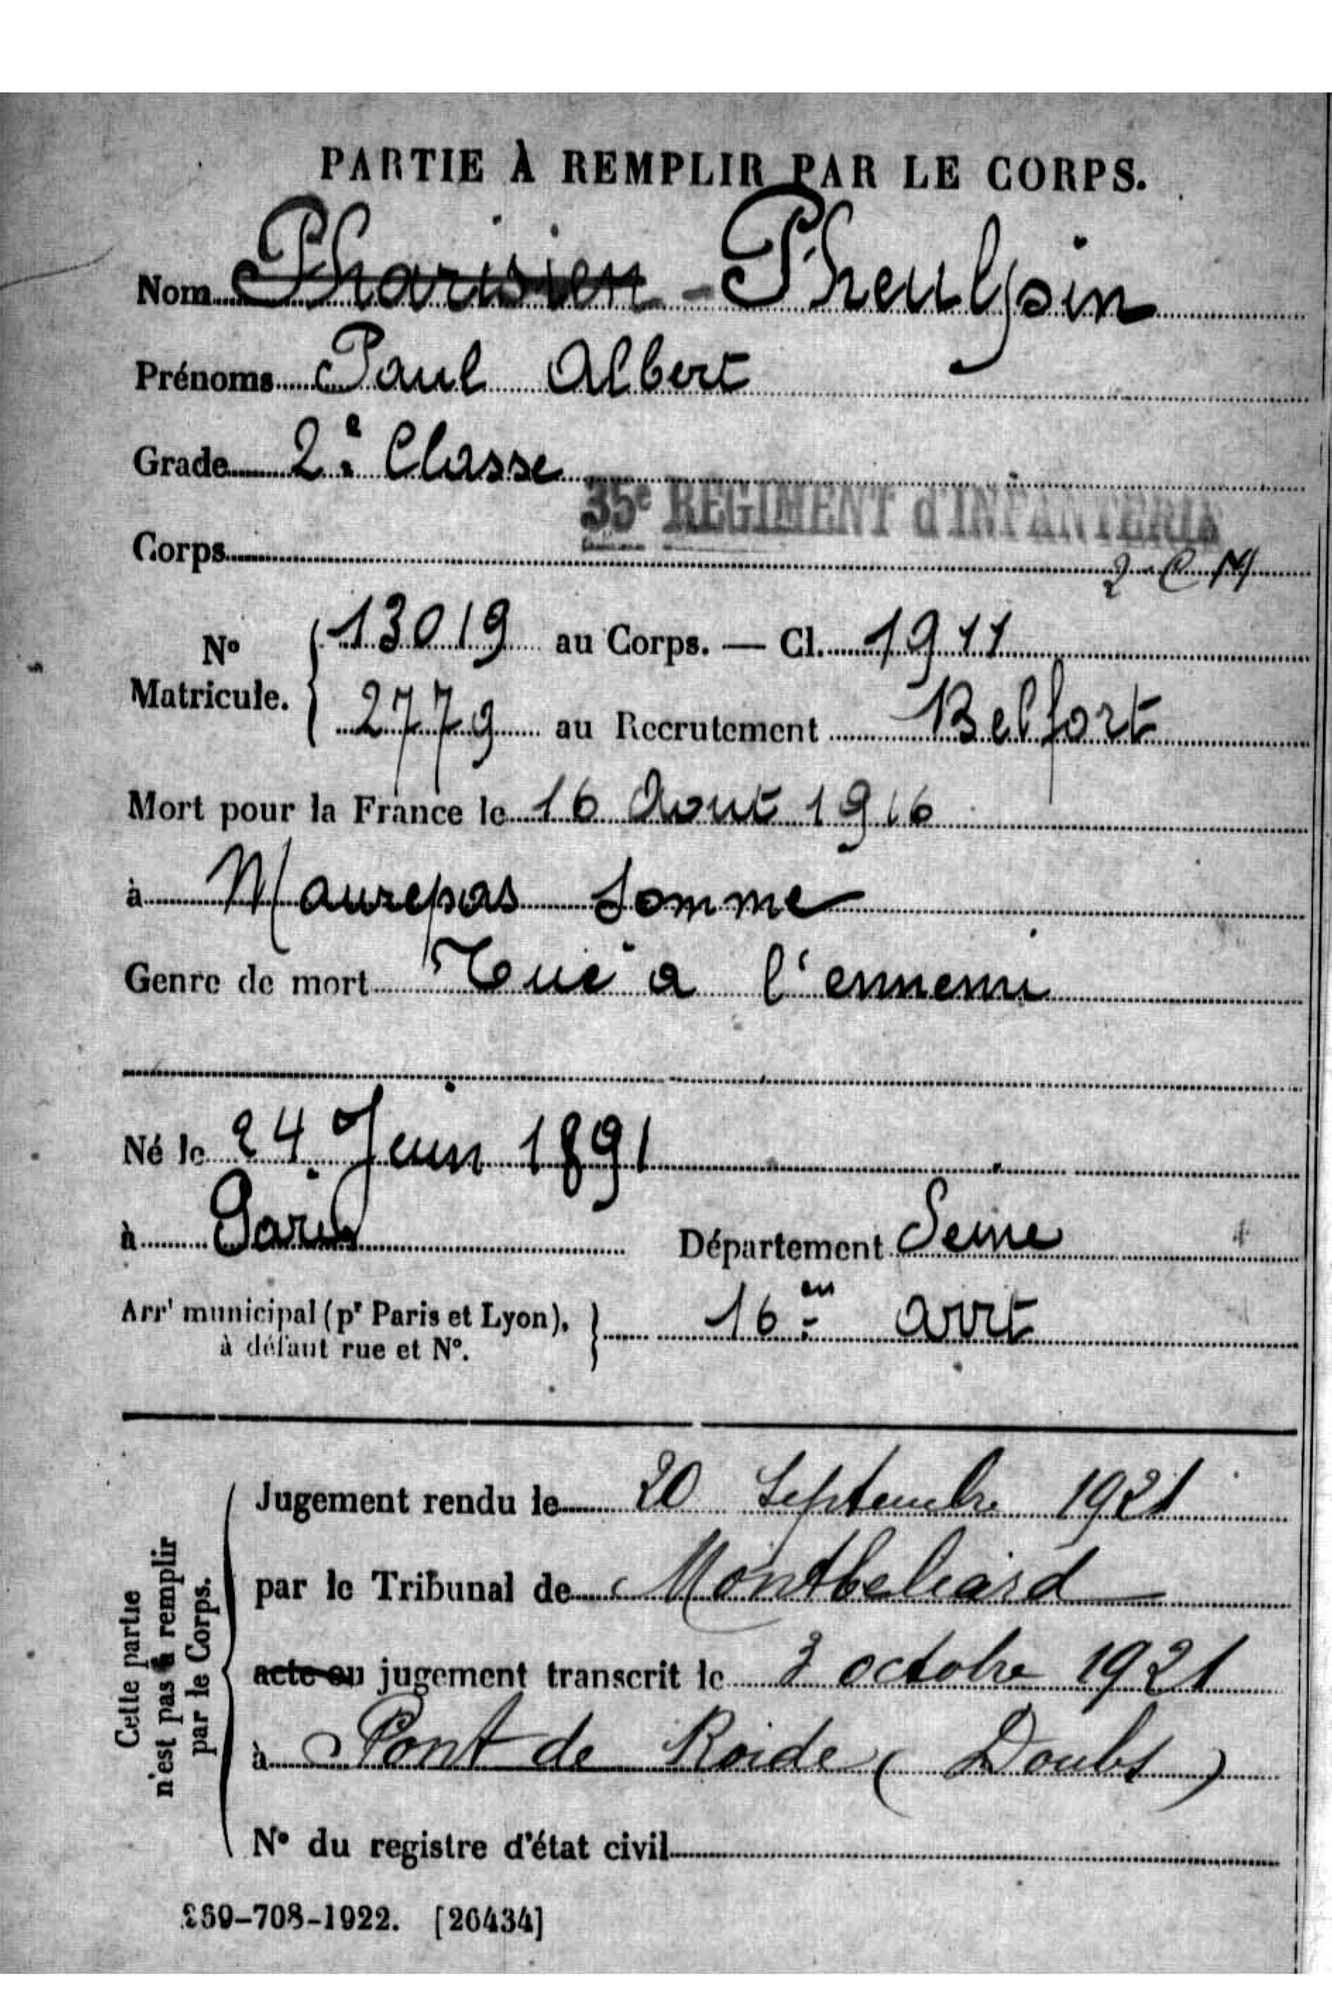 PARTIE À REMPLIR PAR LE CORPS.
Nom Pharisien - Pheulpin
Prénoms Paul Albert
Grade 2e Classe
35e REGIMENT d'INFANTERIE
Corps 2 C M
No Matricule. { 13019 au Corps. — Cl. 1911
2779 au Recrutement Belfort
Mort pour la France le 16 Aout 1916
à Maurepas Somme
Genre de mort Tué a l'ennemi
Né le 24 Juin 1891
à Paris Département Seine
Arrt municipal (pr Paris et Lyon), à défaut rue et No. } 16en arrt
Cette partie n'est pas à remplir par le Corps.
Jugement rendu le 20 Septembre 1921
par le Tribunal de Montbeliard
acte ou jugement transcrit le 3 octobre 1921
à Pont de Roide (Doubs)
No du registre d'état civil
-708-1922. [26434]